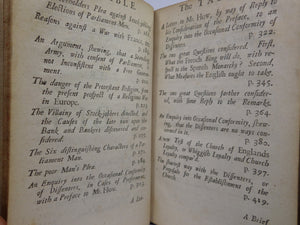 TABLE.
Freeholders Plea against Stock-jobbing
Elections of Parliament Men. p.
Reasons against a War with France. p.
An Argument, shewing, that a Standing
Army, with Consent of Parliament, is
not Inconsistent with a Free Government
The danger of the Protestant Religion, from
the present prospect of a Religious War
in Europe.
The Villainy of Stock-jobbers detected, and
the causes of the late Run upon the
Bank and Bankers discovered and
considered. p.
The Six distinguishing Characters of a Parliament Man. p.
The poor Man's Plea. p.
An Enquiry into the Occasional Conformity
of Dissenters, in Cases of Preferment,
with a Preface to Mr. How. p.
A Let-
The TABLE.
A Letter to Mr. How, by way of Reply to
his Considerations of the Preface, to an
Enquiry into the Occasional Conformity
of Dissenters. p. 322.
The two great Questions consider'd. First,
What the French King will do with respect
to the Spanish Monarchy?
Second, What Measures the English ought to take?
p. 345.
The two great Questions further considered,
with some Reply to the Remarks.
p. 364.
An Enquiry into Occasional Conformity,
p. 382.
A new Test of the Church of Englands
Loyalty, or Whiggish Loyalty and Church
Loyalty compar'd. p. 399.
The shortest way with the Dissenters, or
Proposals for the Establishment of the
Church. p. 419.
A Brief